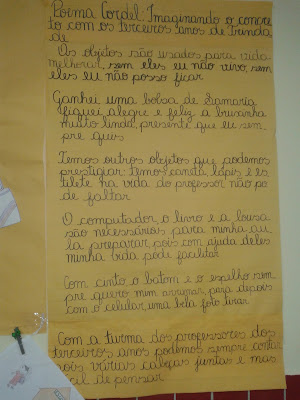 Poema Cordel: Imaginando o concre
to com os terceiros anos de Trinda
de
Os objetos são usados para vida
melhorar, sem eles eu não vivo, sem
eles eu não posso ficar
Ganhei uma bolsa de Samaria
fiquei alegre e feliz a bruxinha
muito linda, presente que eu sem
pre quis
Temos outros objetos que podemos
prestigiar: temos caneta, lápis e es
tilete na vida do professor não po
de faltar
O computador, o livro e a lousa
são necessários para minha au
la preparar, pois com ajuda deles
minha vida pode facilitar
Com cinto, o batom e o espelho sem
pre quero mim arrumar, para depois
com o celular uma bela foto tirar.
Com a turma dos professores dos
terceiros anos podemos sempre contar
pois várias cabeças juntas é mas
cil de pensar